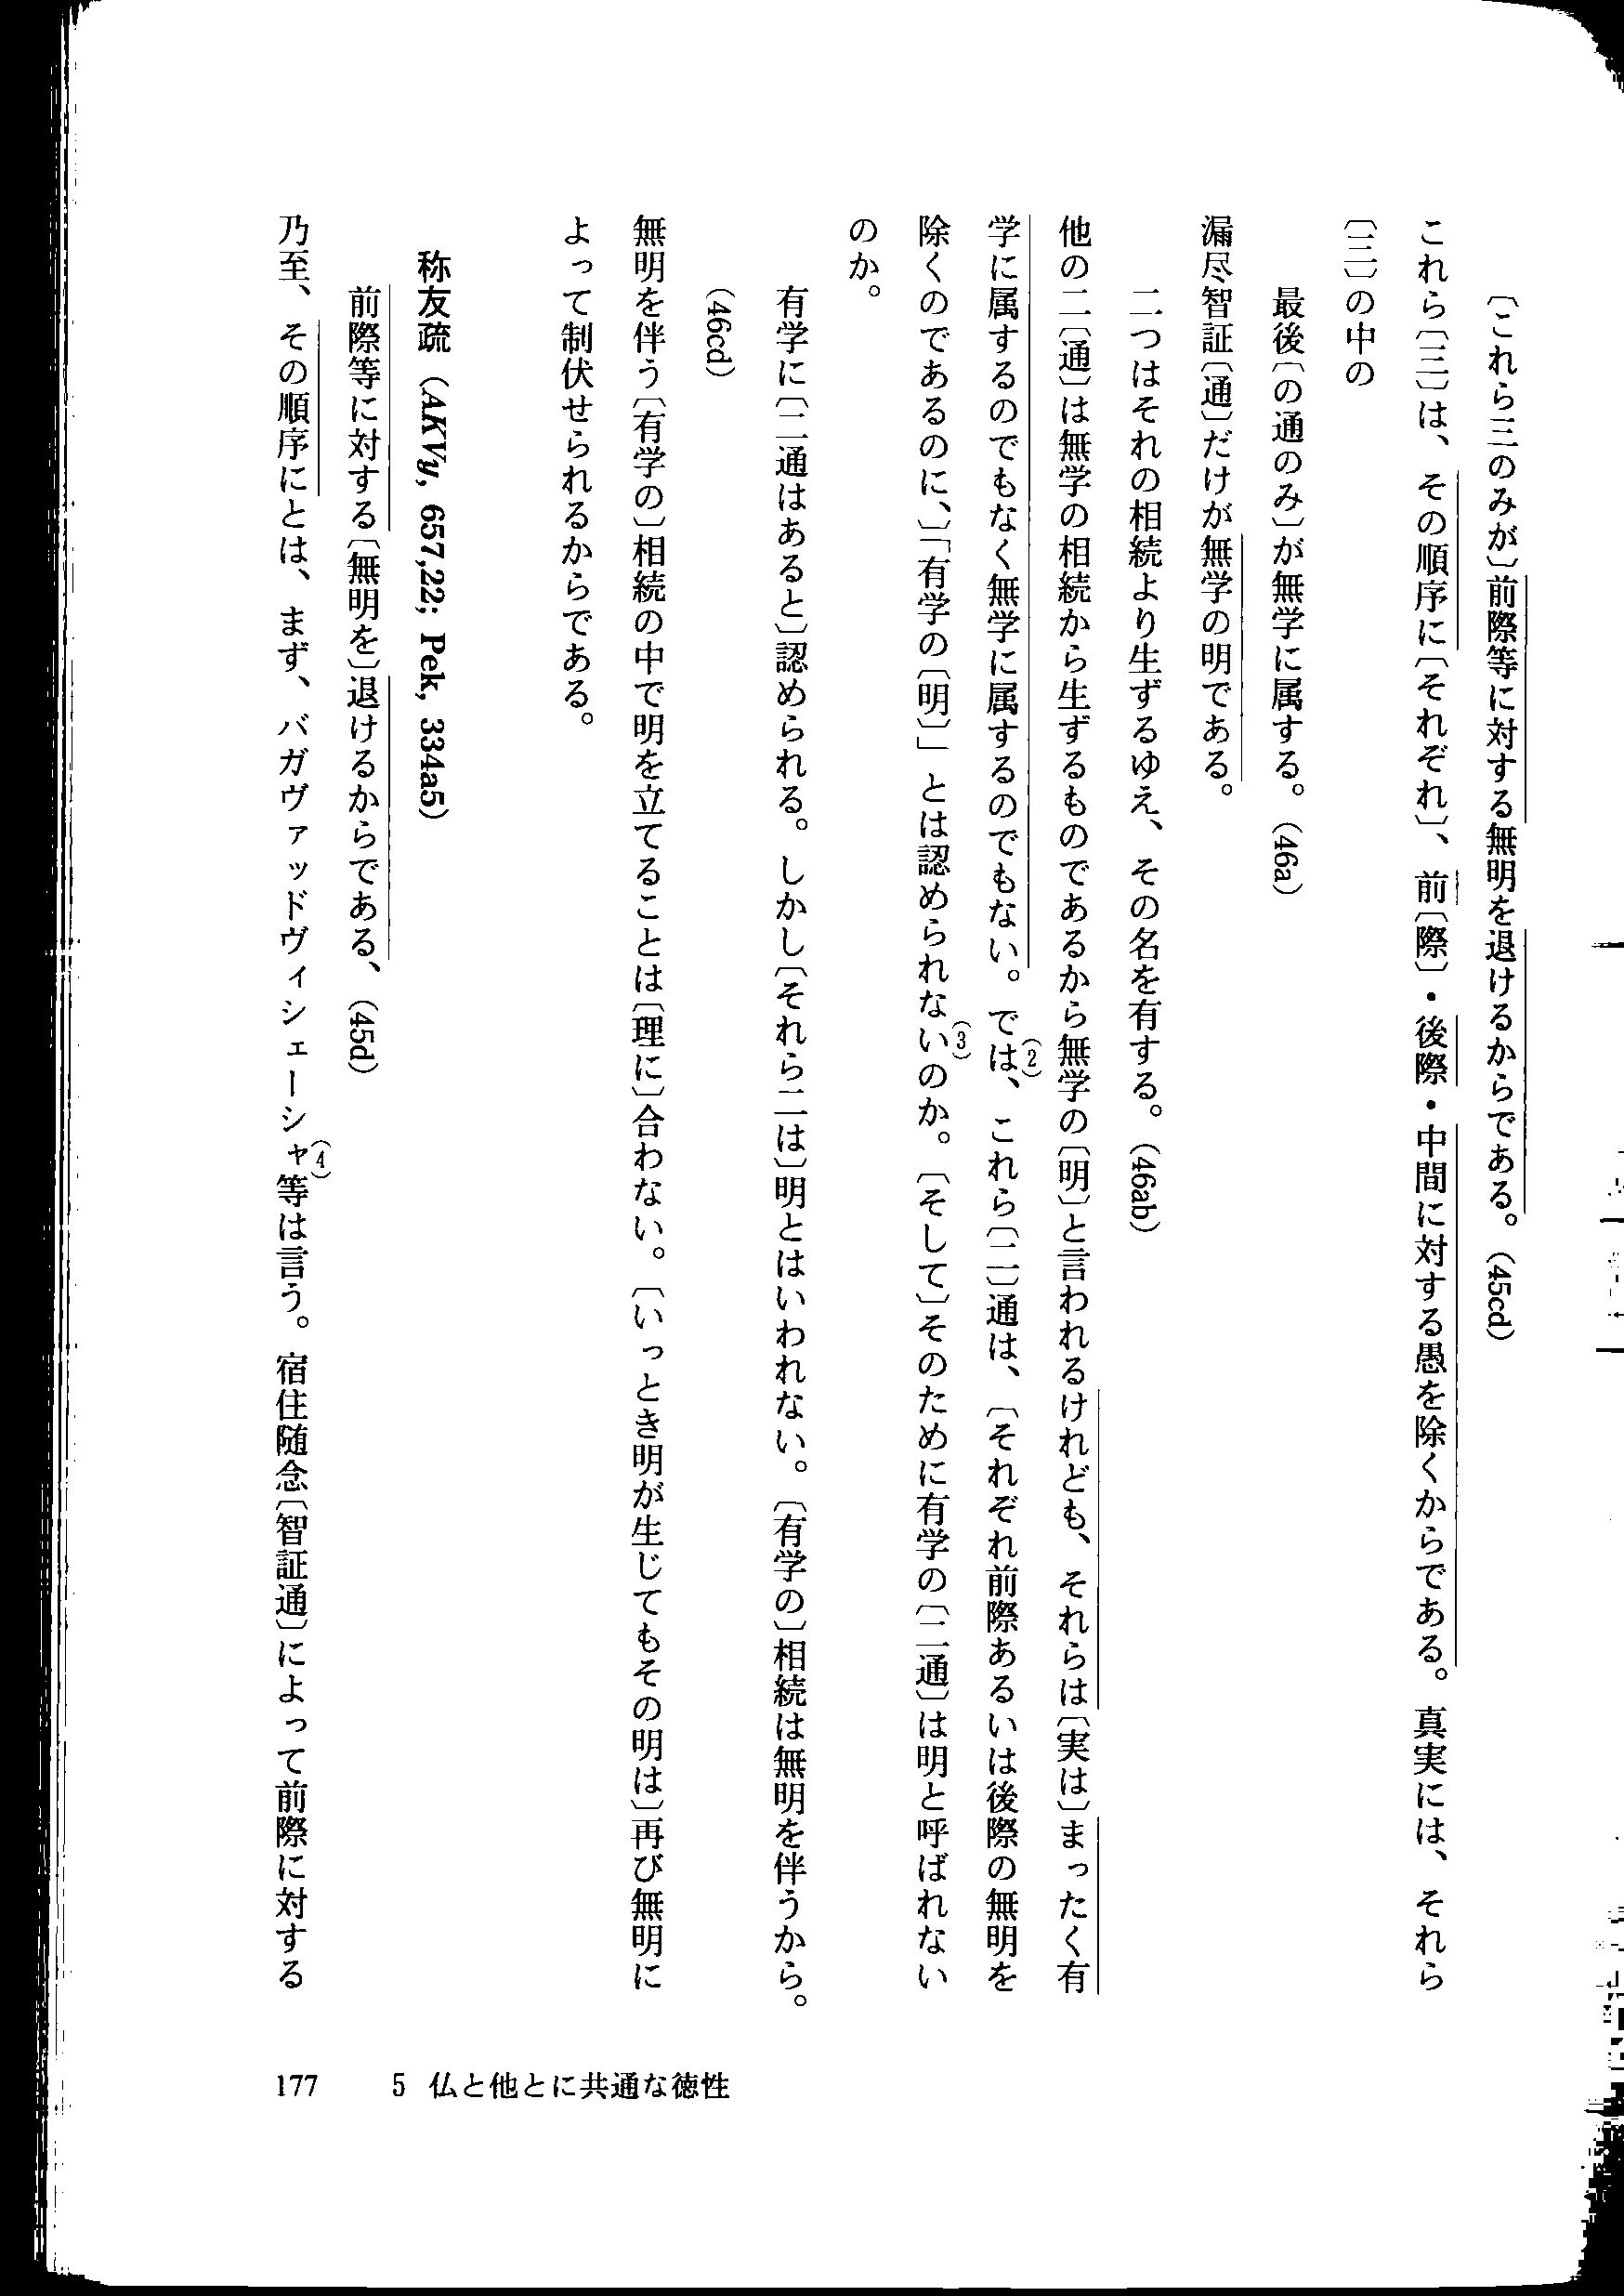 〔これら三のみが〕前際等に対する無明を退けるからである。(45cd)
これら〔三〕は、その順序に〔それぞれ〕、前〔際〕・後際・中間に対する愚を除くからである。真実には、それら
〔三〕の中の
最後〔の通のみ〕が無学に属する。(46a)
漏尽智証〔通〕だけが無学の明である。
二つはそれの相続より生ずるゆえ、その名を有する。(46ab)
他の二〔通〕は無学の相続から生ずるものであるから無学の〔明〕と言われるけれども、それらは〔実は〕まったく有
学に属するのでもなく無学に属するのでもない。では、(2)これら〔二〕通は、〔それぞれ前際あるいは後際の無明を
除くのであるのに、〕「有学の〔明〕」とは認められない(3)のか。〔そして〕そのために有学の〔二通〕は明と呼ばれない
のか。
有学に〔二通はあると〕認められる。しかし〔それら二は〕明とはいわれない。〔有学の〕相続は無明を伴うから。
(46cd)
無明を伴う〔有学の〕相続の中で明を立てることは〔理に〕合わない。〔いっとき明が生じてもその明は〕再び無明に
よって制伏せられるからである。
称友疏(AKVy, 657,22; Pek, 334a5)
前際等に対する〔無明を〕退けるからである、(45d)
乃至、その順序にとは、まず、バガヴァッドヴィシェーシャ(4)等は言う。宿住随念〔智証通〕によって前際に対する
177 5 仏と他とに共通な徳性